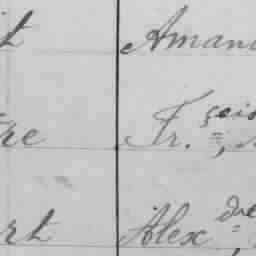 it Aman
re Fr.çois,
rt Alexdre,